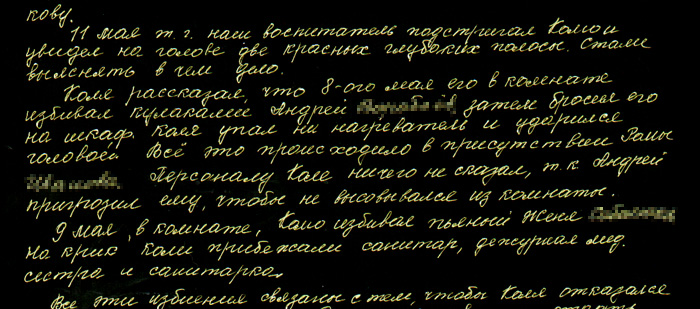 кову.
11 мая т. г. наш воспитатель подстригал Колю и
увидел на голове две красных глубоких полосы. Стали
выяснять в чем дело.
Коля рассказал, что 8-ого мая его в комнате
избивал кулаками Андрей затем бросил его
на шкаф. Коля упал на нагреватель и ударился
головой. Всё это происходило в присутствии Ромы
Персоналу Коля ничего не сказал, т.к. Андрей
пригрозил ему, чтобы не высовывался из комнаты.
9 мая, в комнате, Колю избивал пьяный Женя
На крик Коли прибежали санитар, дежурная мед.
сестра и санитарка.
Все эти избиения связаны с тем, чтобы Коля отказался